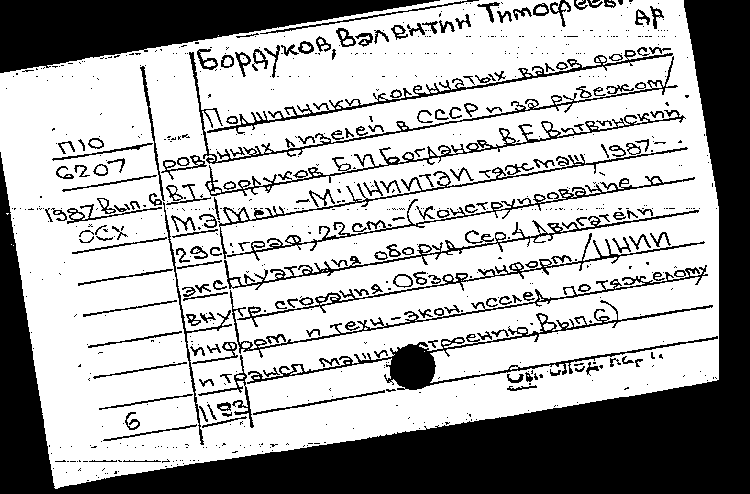 Бордуков, Валентин Тимофееви
АР
Подшипники коленчатых валов форси-
П10
рованных дизелей в СССР и за рубежом /
6207
В.Т. Бордуков, Б.И. Богданов, В.Е. Витвинский,
1987 Вып.6
М.Э. Меш. - М.: ЦНИИТЭИ тяжмаш, 1987. -
ОСХ
29с.: граф; 22см. - (Конструирование и
эксплуатация оборуд. Сер.4, Двигатели
внутр. сгорания: Обзор. информ. / ЦНИИ
информ. и техн.-экон. исслед. по тяжелому
и трансп. машиностроению; Вып. 6)
См. след. карт.
6